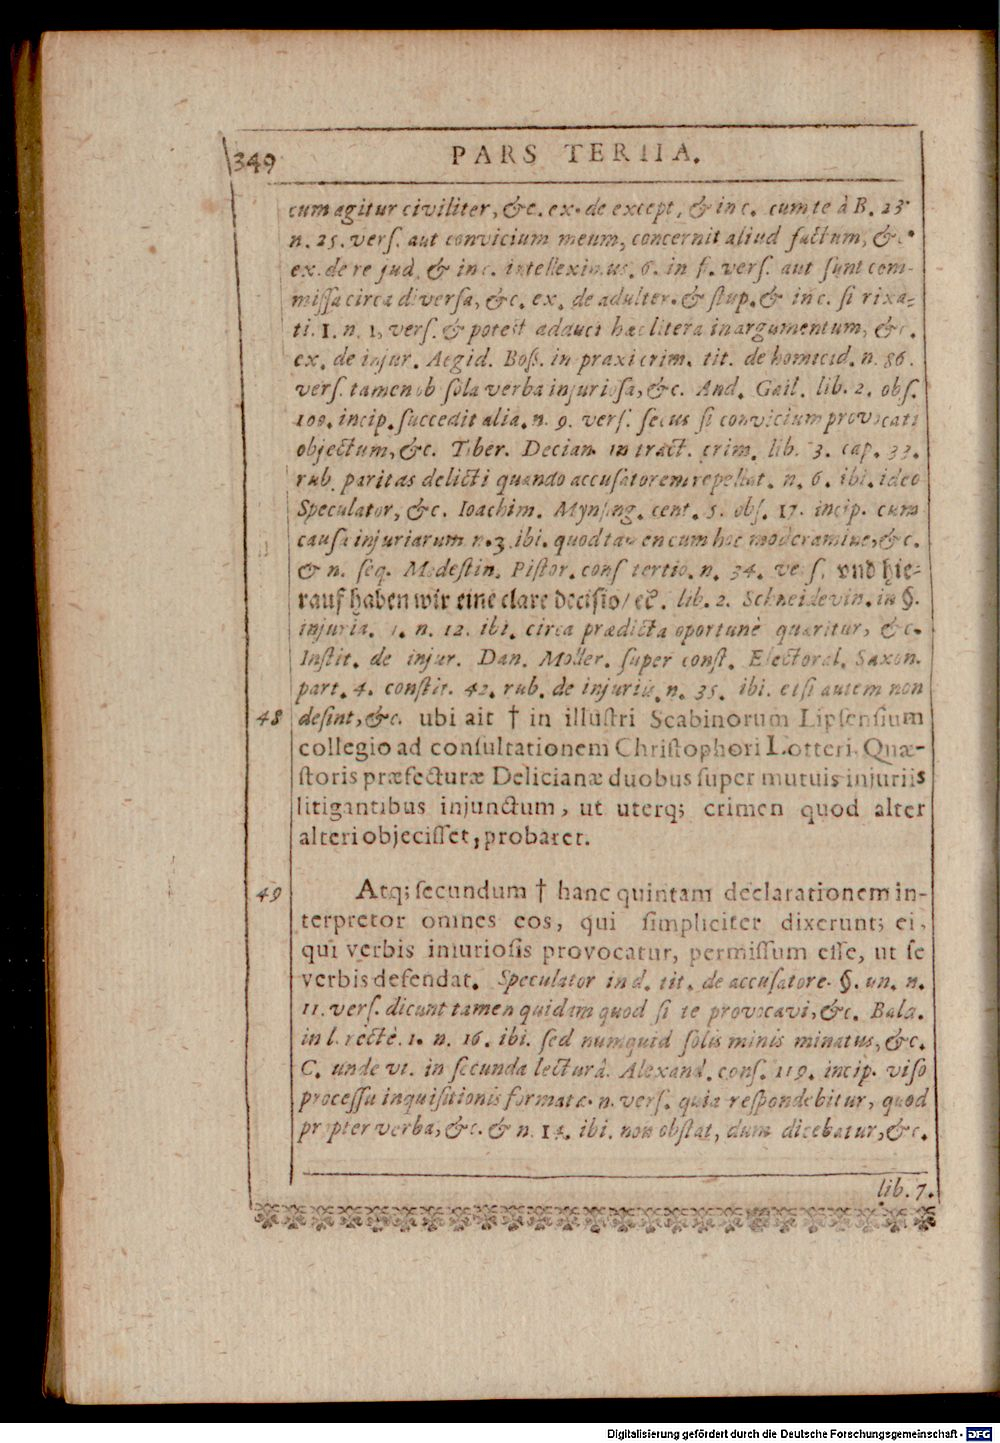 349
PARS TERTIA.
cum agitur civiliter, &c. ex. de except, & in c. cum te à B. 23.
n. 25. verſ. aut convicium meum, concernit aliud factum, &c.
ex. de re jud. & in c. intelleximus. 6. in f. verſ. aut ſunt com-
miſſa circa diverſa, &c. ex. de adulter. & ſtup. & in c. ſi rixa-
ti. 1. n. 1, verſ. & poteſt adduci hæc litera in argumentum, &c.
ex. de injur. Aegid. Boß. in praxi crim. tit. de homicid. n. 86.
verſ. tamen ob ſola verba injurioſa, &c. And. Gail. lib. 2. obſ.
100. incip. ſuccedit alia. n. 9. verſ. ſecus ſi convicium provocati
objectum, &c. Tiber. Decian. in tract. crim. lib. 3. cap. 33.
rub. paritas delicti quando accuſatorem repellat. n. 6. ibi. ideo
Speculator, &c. Ioachim. Mynſing. cent. 5. obſ. 17. incip. cum
cauſa injuriarum n. 3. ibi. quod tamen cum hoc moderamine, &c.
& n. ſeq. Modeſtin. Piſtor. conſ tertio. n. 34. verſ. vnd hie-
rauf haben wir eine clare deciſio/ ec. lib. 2. Schneidevin. in §.
injuria. 1. n. 12. ibi. circa prædicta oportunè quæritur, &c.
Inſtit. de injur. Dan. Moller. ſuper conſt. Electoral. Saxon.
part. 4. conſtit. 42. rub. de injuriis. n. 35. ibi. etſi autem non
48 deſint, &c. ubi ait † in illuſtri Scabinorum Lipſenſium
collegio ad conſultationem Chriſtophori Lotteri, Quæ-
ſtoris præfecturæ Delicianæ duobus ſuper mutuis injuriis
litigantibus injunctum, ut uterq; crimen quod alter
alteri objeciſſet, probaret.
49 Atq; ſecundum † hanc quintam declarationem in-
terpretor omnes eos, qui ſimpliciter dixerunt; ei,
qui verbis iniurioſis provocatur, permiſſum eſſe, ut ſe
verbis defendat. Speculator in d. tit. de accuſatore. §. un. n.
11. verſ. dicunt tamen quidam quod ſi te provocavi, &c. Bald.
in l. rectè. 1. n. 16. ibi. ſed numquid ſolis minis minatus, &c.
C. unde vi. in ſecunda lecturâ. Alexand. conſ. 119. incip. viſo
proceſſu inquiſitionis formatæ. n. verſ. quia reſpondebitur, quod
propter verba, &c. & n. 14. ibi. non obſtat, dum dicebatur, &c.
lib. 7.
Digitalisierung gefördert durch die Deutsche Forschungsgemeinschaft - DFG